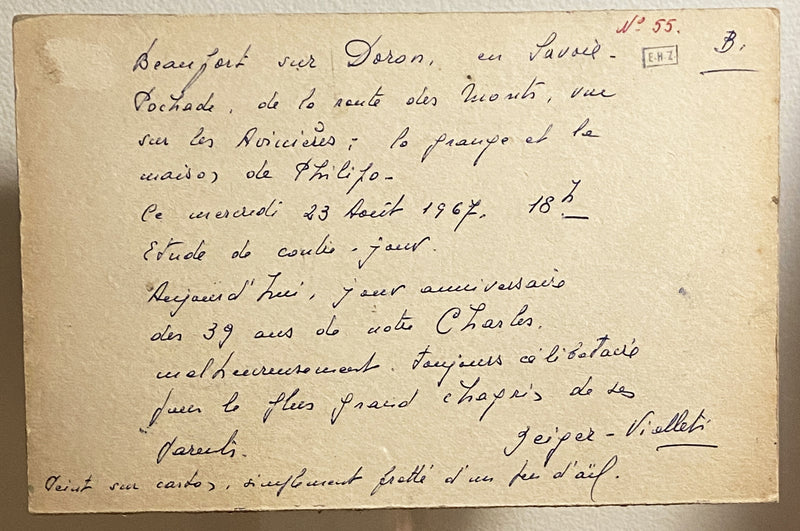 N° 55.
B.
E.H.Z
Beaufort sur Doron, en Savoie-
Pochade, de la route des Monts, vue
sur les Avinières; la grange et la
maison de Philipo-
Ce mercredi 23 Août 1967, 18h
Etude de contre-jour.
Aujourd'hui, jour anniversaire
des 39 ans de notre Charles,
malheureusement, toujours célibataire
pour le plus grand chagrin de ses
parents.
Zeiger-Viallet
Peint sur carton, simplement frotté d'un peu d'ail.